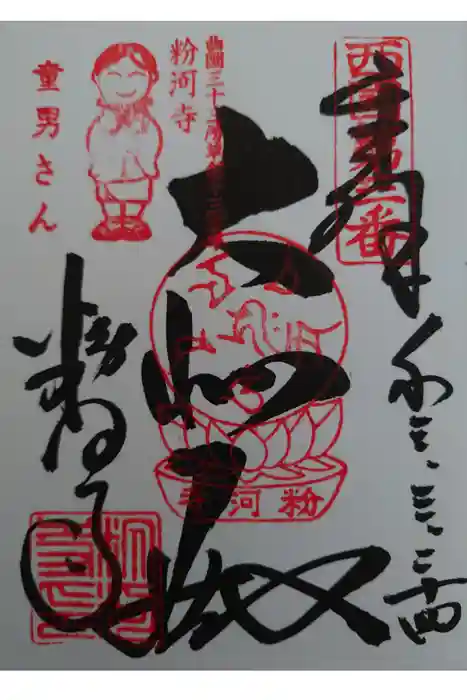 奉拝
西国第三番
令三、三、二十四
西國三十三所
粉河寺
童男さん
大悲殿
粉河寺
粉河寺